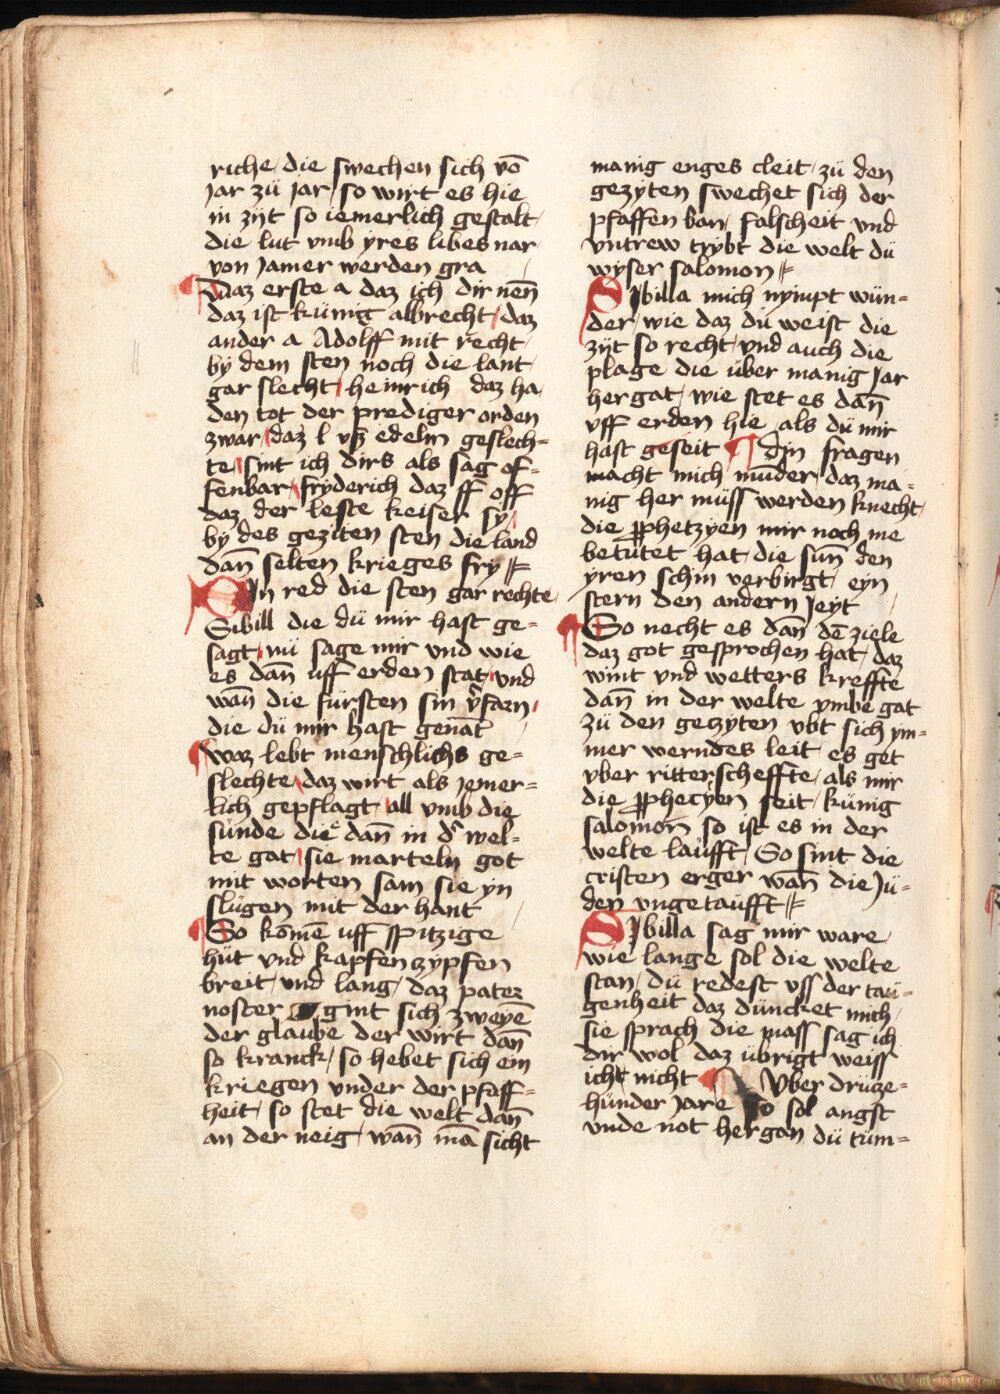 riche / die swechen sich vō
Jar zü Jar / so wirt es hie
in zÿt so iemerlich gestalt /
die lut vmb ÿres libes nar
von Jamer werden gra
Daz erste a daz ich dir nen̄
daz ist künig albrecht / daz
ander a Adolff mit recht /
bÿ dem sten noch die lant /
gar slecht / heinrich daz ha
den tot der prediger orden
zwar / daz l vß edelm geslech=
te / sint ich dirs als sag of=
fenbar / frÿderich daz ff off
daz der leste keiser sÿ /
bÿ des geziten sten die land
dan̄ selten krieges frÿ //
DIn red die sten gar rechte /
Sibill die dü mir hast ge=
sagt / nü sage mir vnd wie
es dan̄ uff erden stat / vnd
wan̄ die fürsten sin v̾farn /
die dü mir hast genāt /
waz lebt menschlichs ge=
slechte / daz wirt als jemer=
lich gepflagt / all vmb die
sünde die dan̄ in d̾ wel=
te gat / sie marteln got
mit worten sam sie ÿn
slügen mit der hant /
So kōmē uff spitzige
hüt vnd kapfenzÿpfen
breit / vnd lang / daz pater
noster gint sich zweÿē
der glaube der wirt dan̄
so kranck / so hebet sich ein
kriegen vnder der pfaff=
heit / so stet die welt dan̄
an der neig / wan̄ mā sicht
manig enges cleit / zü den
gezÿten swechet sich der
pfaffen ban / falscheit vnd
vntrew trÿbt die welt dü
wÿser salomon //
SIbilla mich nÿmpt wün=
der / wie daz dü weist die
zÿt so recht / vnd auch die
plage die über manig Jar
her gat / wie stet es dan̄
vff erden hie als dü mir
hast geseit din fragen
macht mich mūder / daz ma=
nig her müss werden knecht /
die ꝓphetzÿen mir noch me
betütet hat / die sun̄ den
ÿren schin verbirgt / eÿn
stern den andern Jeÿt /
So necht es dan̄ dē ziele
daz got gesprochen hat / daz
wint vnd wetters kreffte
dan̄ in der welte vmbe gat
zü den gezÿten vbt sich ÿm=
mer werndes leit es get
vber ritterscheffte / als mir
die ꝓphecÿen seit / künig
salomon so ist es in der
welte laufft / So sint die
cristen erger wan̄ die Jü=
den vngetaufft //
SIbilla sag mir ware /
wie lange sol die welte
stan / dü redest vss der tau=
genheit daz düncket mich /
sie sprach die mass sag ich
dir wol daz übrigt weiss
icht nicht Vber drüze=
hünder Jare so sol angst
vnde not hergan dü tüm=